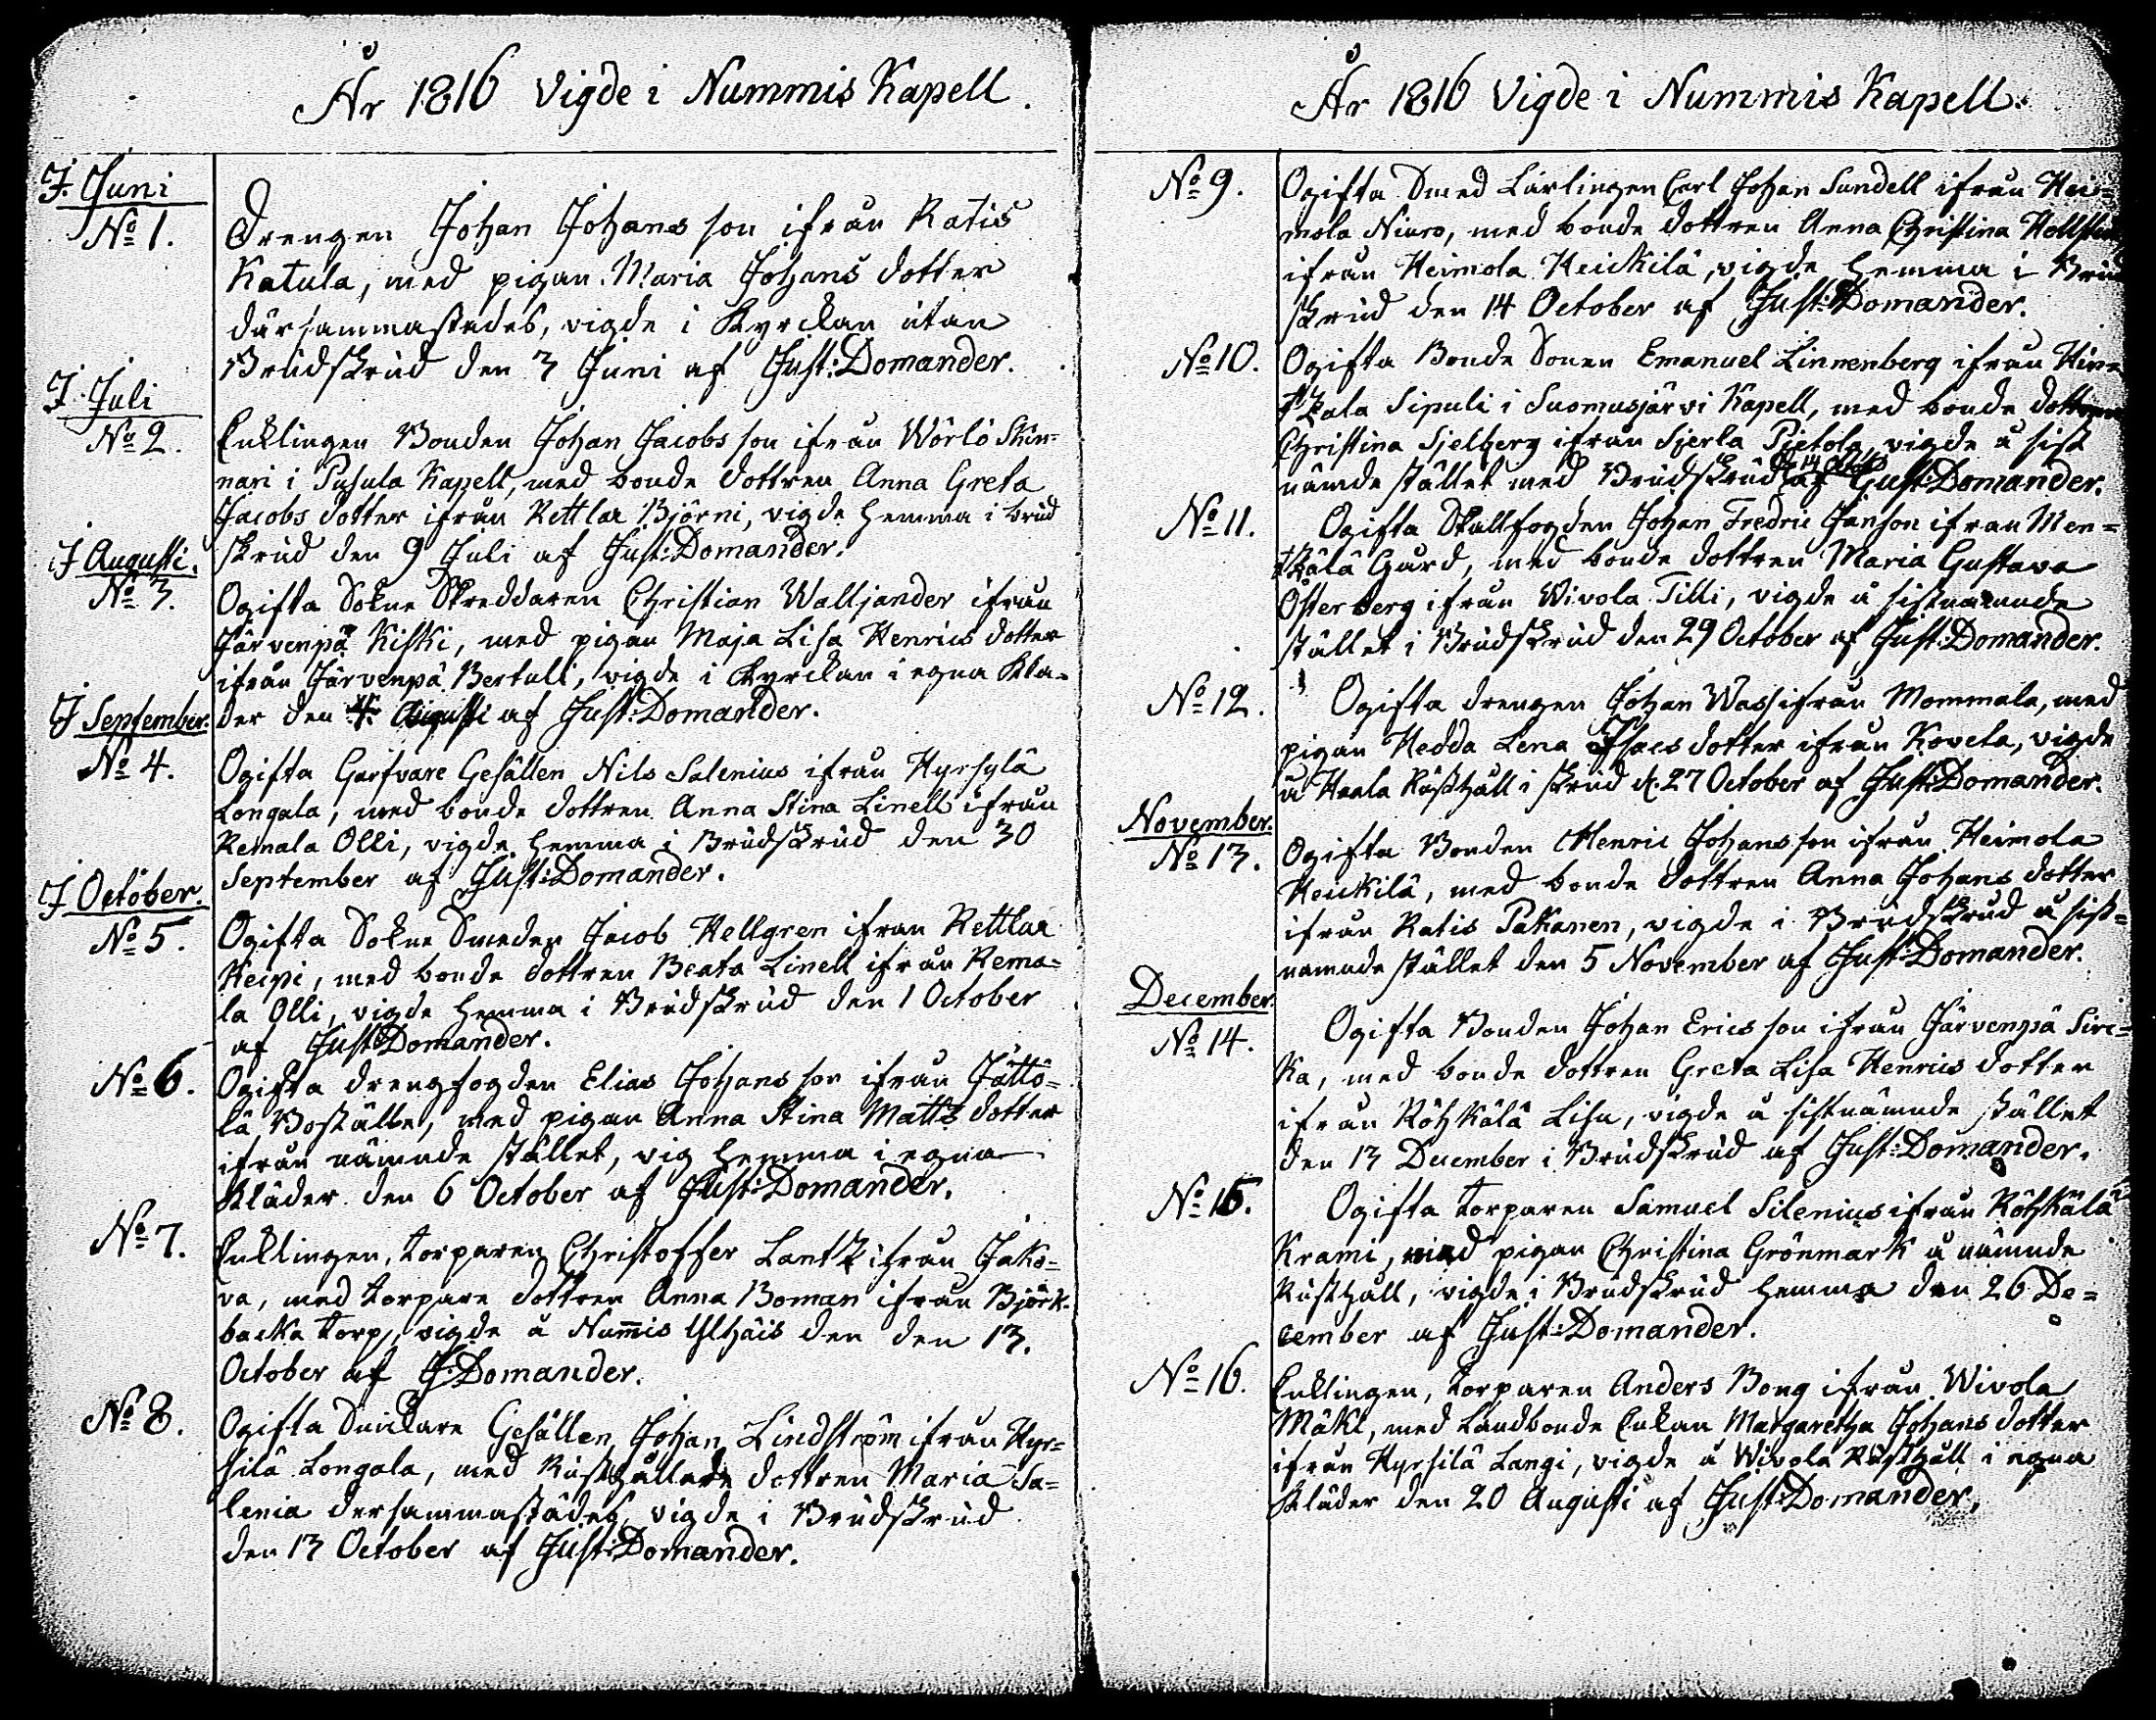 År 1816 Vigde i Nummis Kapell.
J. Juni
No 1.
Drengen Johan Johans son ifrån Ratis
Katula, med pigan Maria Johans dotter
därsammastädes, vigde i Kyrckan utan
Brudskrud den 3 Juni af Just: Domander.
J. Juli
No 2.
Encklingen Bonden Johan Jacobs son ifrån Wörlö Skin-
nari i Pusula Kapell, med bonde dottren Anna Greta
Jacobs dotter ifrån Rettlax Björni, vigde hemma i brud
skrud den 9 Juli af Just: Domander.
J Augusti.
No 3.
Ogifta Sokne Skreddaren Christian Walljander ifrån
Järvenpä Kiski, med pigan Maja Lisa Henrics dotter
ifrån Järvenpä Bertuli, vigde i Kyrckan i egna Klä-
der den 4 Augusti af Just: Domander.
J September.
No 4.
Ogifta Garfvare Gesällen Nils Salenius ifrån Hyrsylä
Longala, med bonde dottren Anna Stina Linell ifrån
Remala Olli, vigde hemma i Brudskrud den 30
September af Just: Domander.
J October.
No 5.
Ogifta Sokne Smeden Jacob Hellgren ifran Rettlax
Heipi, med bonde dottren Beata Linell ifrån Rema-
la Olli, vigde hemma i Brudskrud den 1 October
af Just: Domander.
No 6.
Ogifta drengfogden Elias Johans son ifrån Jättö-
lä Boställe, med pigan Anna Stina Matts dotter
ifrån nämnde stället, vig hemma i egna
Kläder den 6 October af Just: Domander.
No 7.
Encklingen, torparen Christoffer Lantz ifrån Jako-
va, med torpare dottren Anna Boman ifrån Björk-
backa torp, vigde å Num̄is Ylhäis den den 13.
October af J: Domander.
No 8.
Ogifta Snickare Gesällen Johan Lindström ifrån Hyr-
silä Longala, med Rusthållare dottren Maria Sa-
lenia dersammastädes, vigde i Brudskrud
den 13 October af Just: Domander.
År 1816 Vigde i Nummis Kapell.
No 9.
Ogifta Smed Lärlingen Carl Johan Sundell ifrån Hei-
mola Niuro, med bonde dottren Anna Christina
ifrån Heimola Heickilä, vigde hemma i Brud
skrud den 14 October af Just: Domander.
No 10.
Ogifta Bonde Sonen Emanuel Linnenberg ifrån
Sipuli i Suomusjärvi Kapell, med bonde dottren
Christina Sjelberg ifrån Sjerla Pietola, vigde å sist
nämde stället med Brudskrud d. 14 Oct. af Just: Domander.
No 11.
Ogifta Stallfogden Johan Fredric Janson ifran Men-
skälä Gård, med bonde dottren Maria Gustava
Österberg ifrån Wivola Tilli, vigde å sistnämnde
stället i Brudskrud den 29 October af Just: Domander.
No 12.
Ogifta drengen Johan Wass ifrån Mommala, med
pigan Hedda Lena Isacs dotter ifrån Kovela, vigde
å Haala Rusthåll i skrud d. 27 October af Just: Domander.
November.
No 13.
Ogifta Bonden Henric Johans son ifrån Heimola
Heickilä, med bonde dottren Anna Johans dotter
ifrån Ratis Pakanen, vigde i Brudskrud å sist-
nämnde stället den 5 November af Just: Domander.
December.
No 14.
Ogifta Bonden Johan Erics son ifrån Järvenpä Sirc-
ka, med bonde dottren Greta Lisa Henrics dotter
ifrån Röhkälä Lisu, vigde å sistnämnde stället
den 13 December i Brudskrud af Just: Domander.
No 15.
Ogifta torparen Samuel Silenius ifrån Röhkälä
Krami, med pigan Christina Grönmark å nämnde
Rusthåll, vigde i Brudskrud hemma den 26 De-
cember af Just: Domander.
No 16.
Encklingen, torparen Anders Bong ifrån Wivola
Mäki, med Landbonde Enckan Margaretha Johans dotter
ifrån Hyrsilä Langi, vigde å Wivola Rusthåll i egna
Kläder den 20 Augusti af Just: Domander.